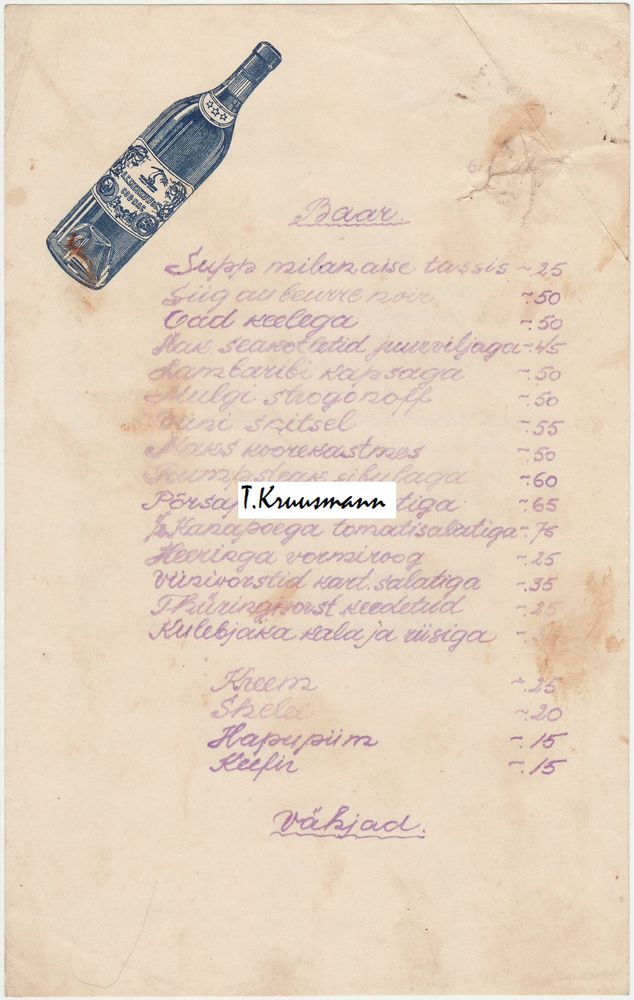 COGNAC
Baar.
Supp milanaise tassis -.25
Siig au beurre noir -.50
Oad keelega -.50
Hak. seakotletid juurviljaga -.45
Lambaribi kapsaga -.50
Mulgi strogonoff -.50
Viini snitsel -.55
Maks koorekastmes -.50
Rumpsteak sibulaga -.60
T.Kruusmann
-.65
½ Kanapoega tomatisalatiga -.75
Heeringa vormiroog -.25
Viinivorstid kart. salatiga -.35
Thüringivorst keedetud -.25
Kulebjaka kala ja riisiga
Kreem -.25
Shelee -.20
Hapupiim -.15
Keefir -.15
Vähjad.